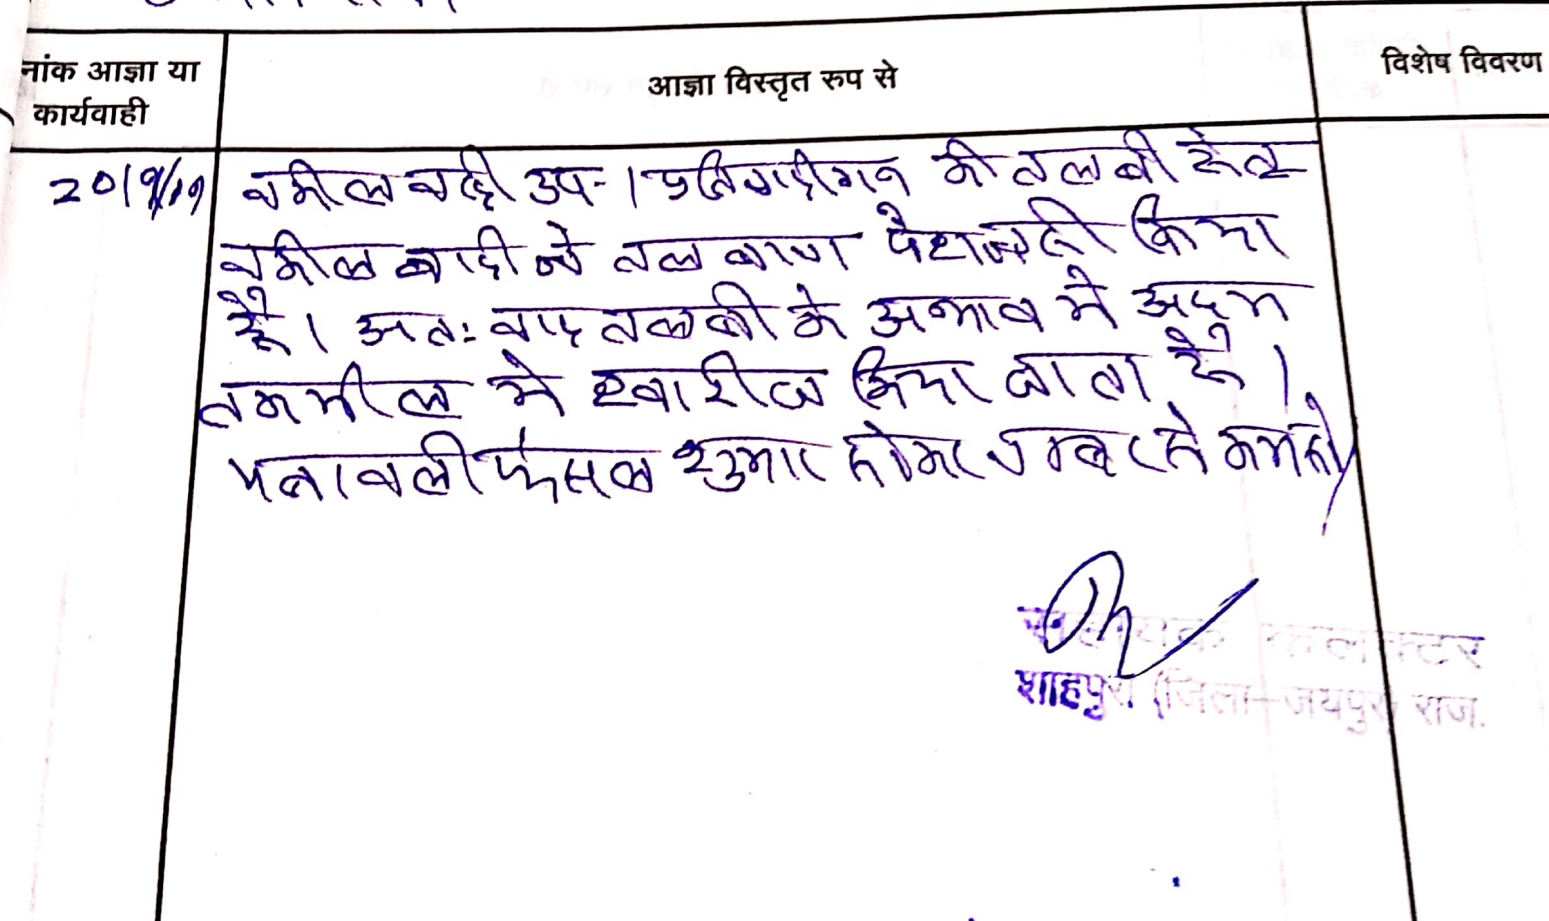 नांक आज्ञा या
कार्यवाही
आज्ञा विस्तृत रुप से
विशेष विवरण
20/9/19
वकील वादी उप-। प्रतिवादीगन की तलबी हेतु
वकील वादी ने तलवाणा पेश नही किया
है। अतः वाद तलबी के अभाव मे अदम
तकमील मे खारीज किया जाता है।
पत्रावली फैसल शुमार होकर नम्बर से कम हो
सहायक कलक्टर
शाहपुरा (जिला-जयपुर) राज.